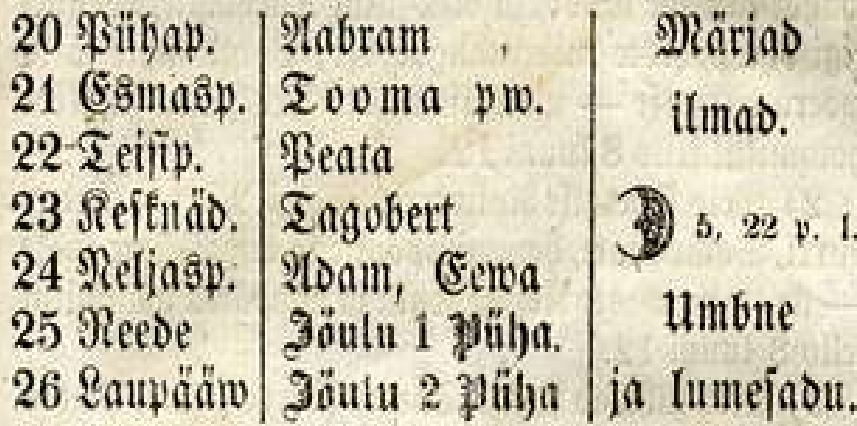 20 Pühap. Aabram Märjad
21 Esmasp. Tooma pw. ilmad.
22 Teisip. Peata
23 Keſknäd. Tagobert 5, 22 p. l.
24 Neljasp. Adam, Eewa
25 Reede Jöulu 1 Püha. Umbne
26 Laupääw Jöulu 2 Püha ja lumeſadu.